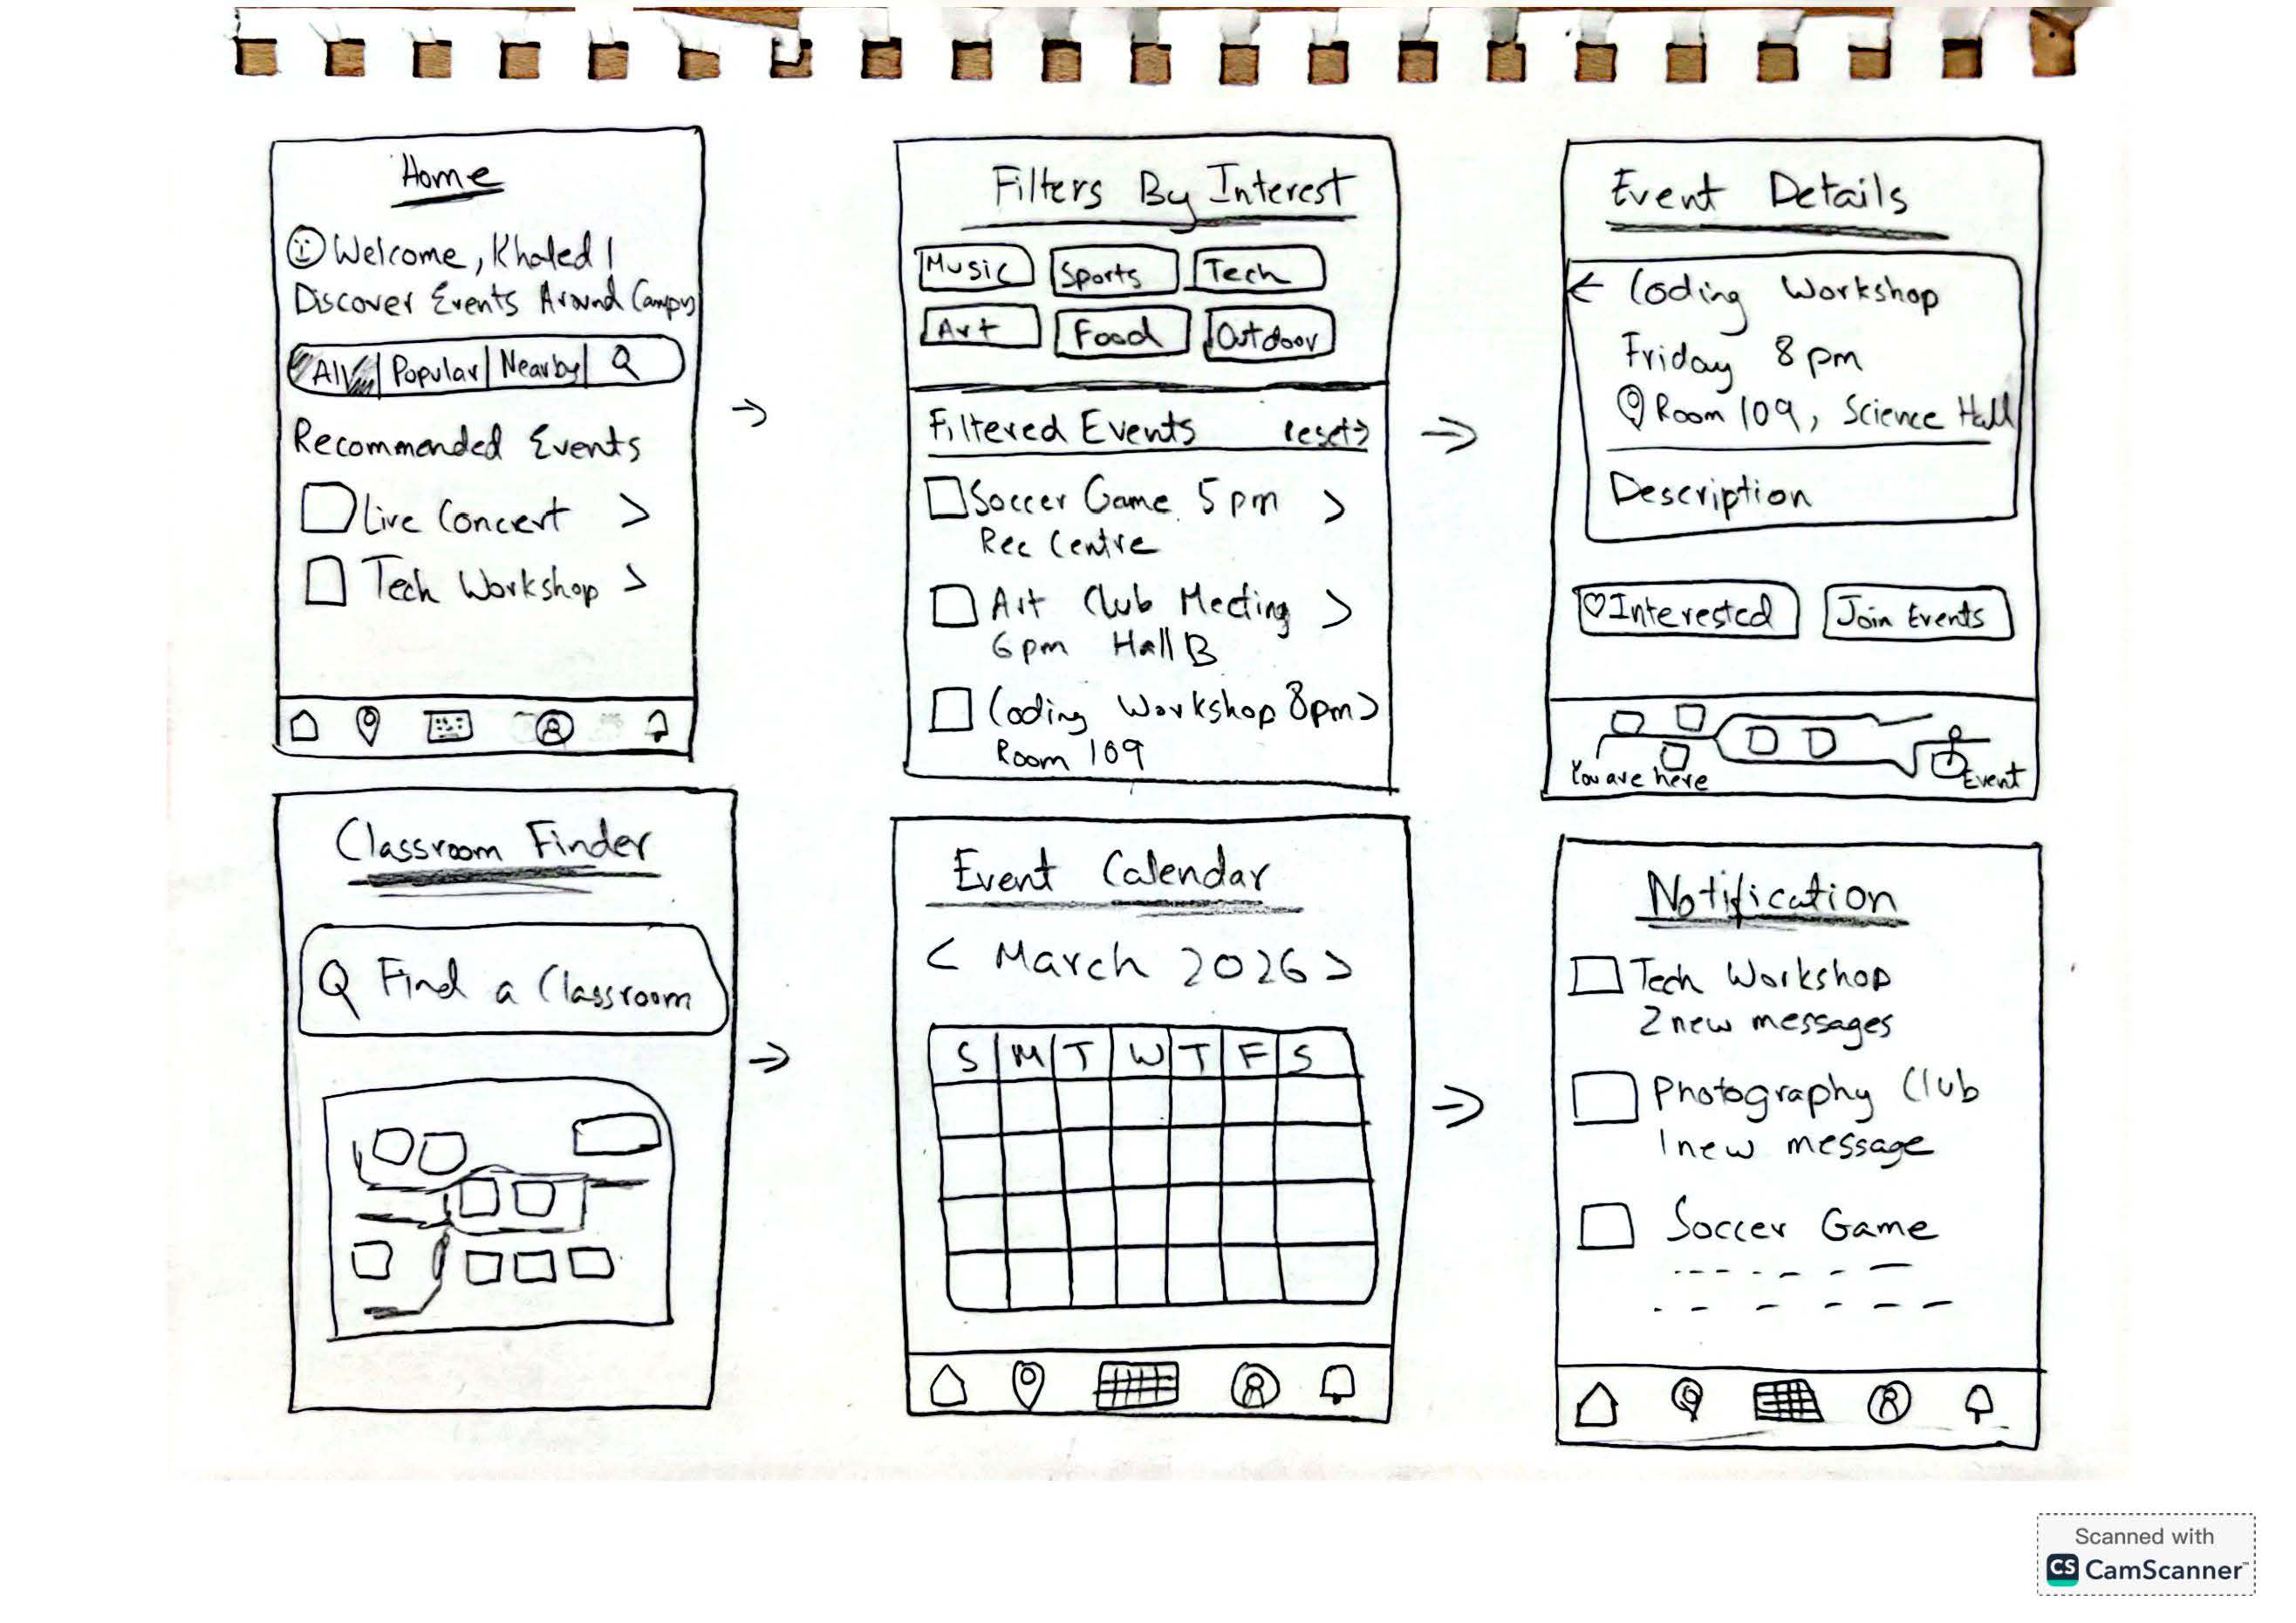 Home
Welcome, Khaled!
Discover Events Around Campus
All
Popular
Nearby
Recommended Events
Live Concert >
Tech Workshop >
Filters By Interest
Music
Sports
Tech
Art
Food
Outdoor
Filtered Events reset→
Soccer Game 5pm >
Rec Centre
Art Club Meeting >
6pm Hall B
Coding Workshop 8pm >
Room 109
Event Details
← Coding Workshop
Friday 8pm
Room 109, Science Hall
Description
♡Interested
Join Events
You are here
Event
Classroom Finder
Find a Classroom
Event Calendar
< March 2026 >
S M T W T F S
Notification
Tech Workshop
2 new messages
Photography Club
1 new message
Soccer Game
Scanned with
CS CamScanner™